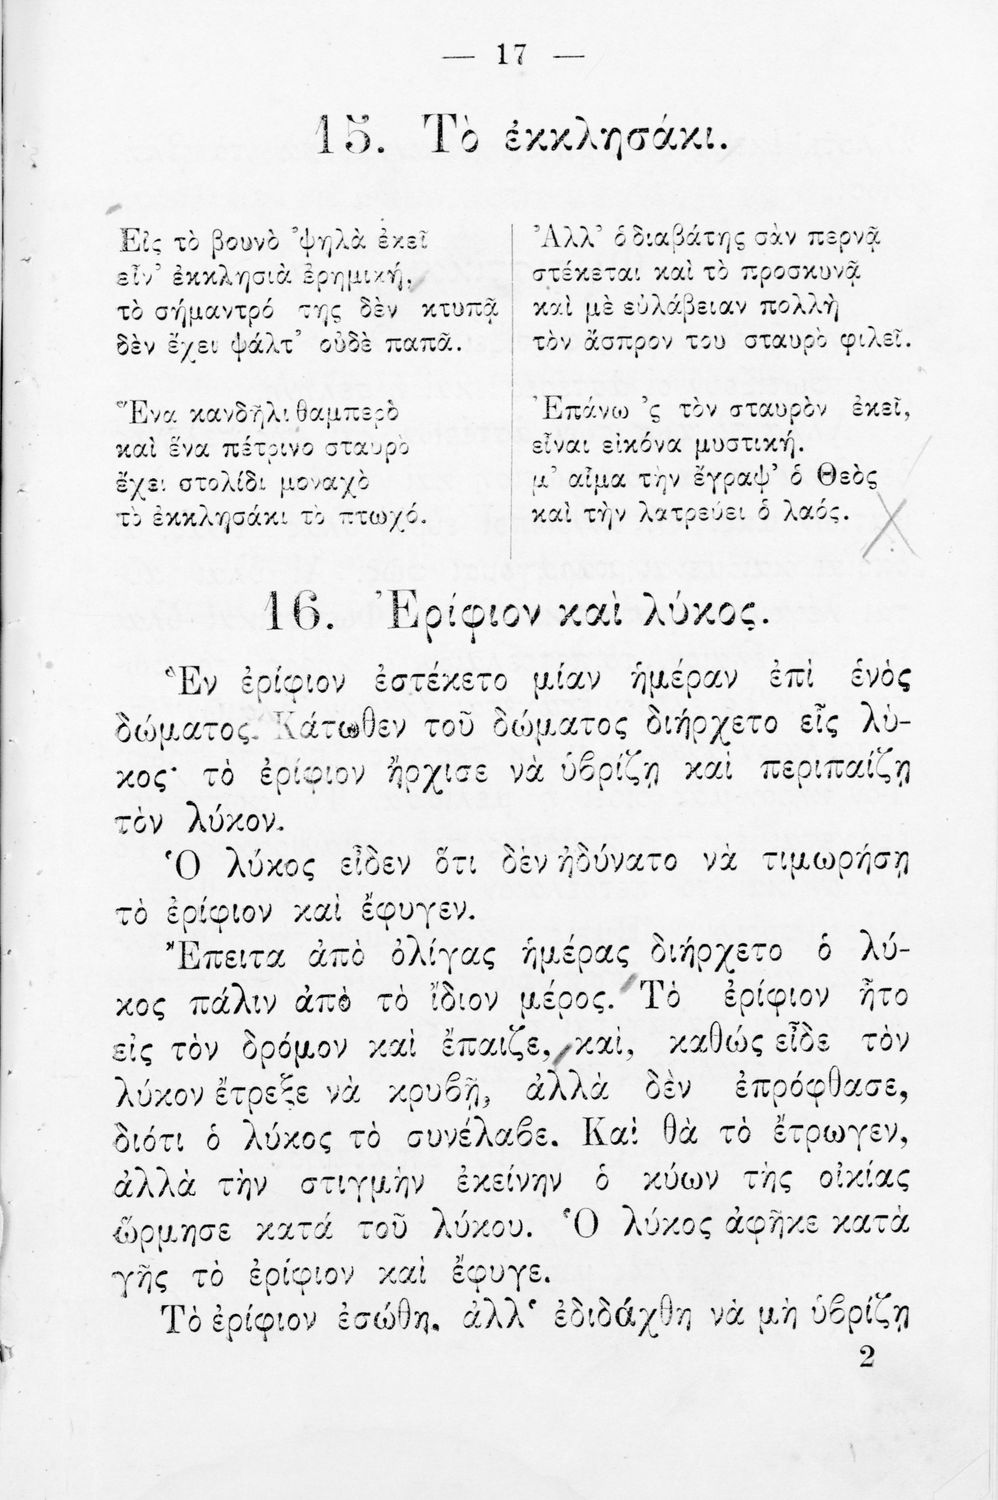 — 17 —
15. Τὸ ἐκκλησάκι.
Εἰς τὸ βουνὸ ’ψηλὰ ἐκεῖ
εἶν’ ἐκκλησιὰ ἐρημική,
τὸ σήμαντρό της δὲν κτυπᾷ
δὲν ἔχει ψάλτ’ οὐδὲ παπᾶ.
Ἕνα κανδῆλι θαμπερὸ
καὶ ἕνα πέτρινο σταυρὸ
ἔχει στολίδι μοναχὸ
τὸ ἐκκλησάκι τὸ πτωχό.
Ἀλλ’ ὁ διαβάτης σὰν περνᾷ
στέκεται καὶ τὸ προσκυνᾷ
καὶ μὲ εὐλάβειαν πολλὴ
τὸν ἄσπρον του σταυρὸ φιλεῖ.
Ἐπάνω ’ς τὸν σταυρὸν ἐκεῖ,
εἶναι εἰκόνα μυστική.
μ’ αἷμα τὴν ἔγραψ’ ὁ Θεὸς
καὶ τὴν λατρεύει ὁ λαός.
16. Ἐρίφιον καὶ λύκος.
Ἓν ἐρίφιον ἐστέκετο μίαν ἡμέραν ἐπὶ ἑνὸς
δώματος. Κάτωθεν τοῦ δώματος διήρχετο εἷς λύ-
κος· τὸ ἐρίφιον ἤρχισε νὰ ὑβρίζῃ καὶ περιπαίζῃ
τὸν λύκον.
Ὁ λύκος εἶδεν ὅτι δὲν ἠδύνατο νὰ τιμωρήσῃ
τὸ ἐρίφιον καὶ ἔφυγεν.
Ἔπειτα ἀπὸ ὀλίγας ἡμέρας διήρχετο ὁ λύ-
κος πάλιν ἀπὸ τὸ ἴδιον μέρος. Τὸ ἐρίφιον ἦτο
εἰς τὸν δρόμον καὶ ἔπαιζε, καὶ, καθὼς εἶδε τὸν
λύκον ἔτρεξε νὰ κρυβῇ, ἀλλὰ δὲν ἐπρόφθασε,
διότι ὁ λύκος τὸ συνέλαβε. Καὶ θὰ τὸ ἔτρωγεν,
ἀλλὰ τὴν στιγμὴν ἐκείνην ὁ κύων τῆς οἰκίας
ὥρμησε κατά τοῦ λύκου. Ὁ λύκος ἀφῆκε κατὰ
γῆς τὸ ἐρίφιον καὶ ἔφυγε.
Τὸ ἐρίφιον ἐσώθη, ἀλλ‘ ἐδιδάχθη νὰ μὴ ὑβρίζῃ
2